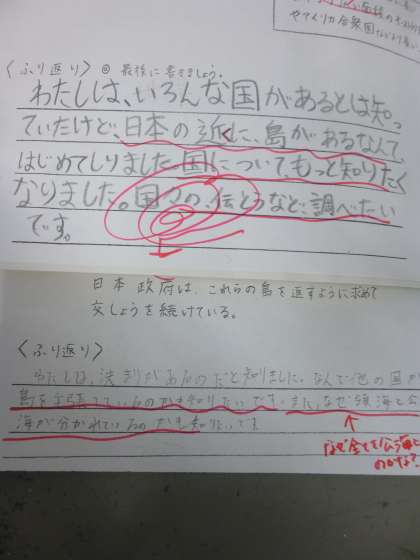 やアメリカ合衆国など
〈ふり返り〉◎最後に書きましょう。
わたしは、いろんな国があるとは知っ
ていたけど、日本の近くに、島があるなんて
はじめてしりました。国について、もっと知りたく
なりました。国々の、伝とうなど、調べたい
です。
日本政府は、これらの島を返すように求めて
交しょうを続けている。
〈ふり返り〉
わたしは、決まりがあるのだと知りました。なんで他の国が
島を しているのかも知りたいです。また、なぜ領海と公
海が分かれているのかも知りたいです
なぜ全てを公海に
のかな?